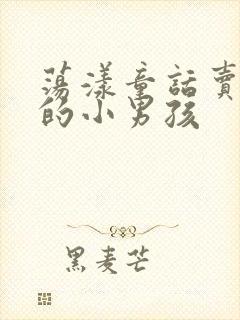 蕩漾童話賣
的小男孩
黑麦芒